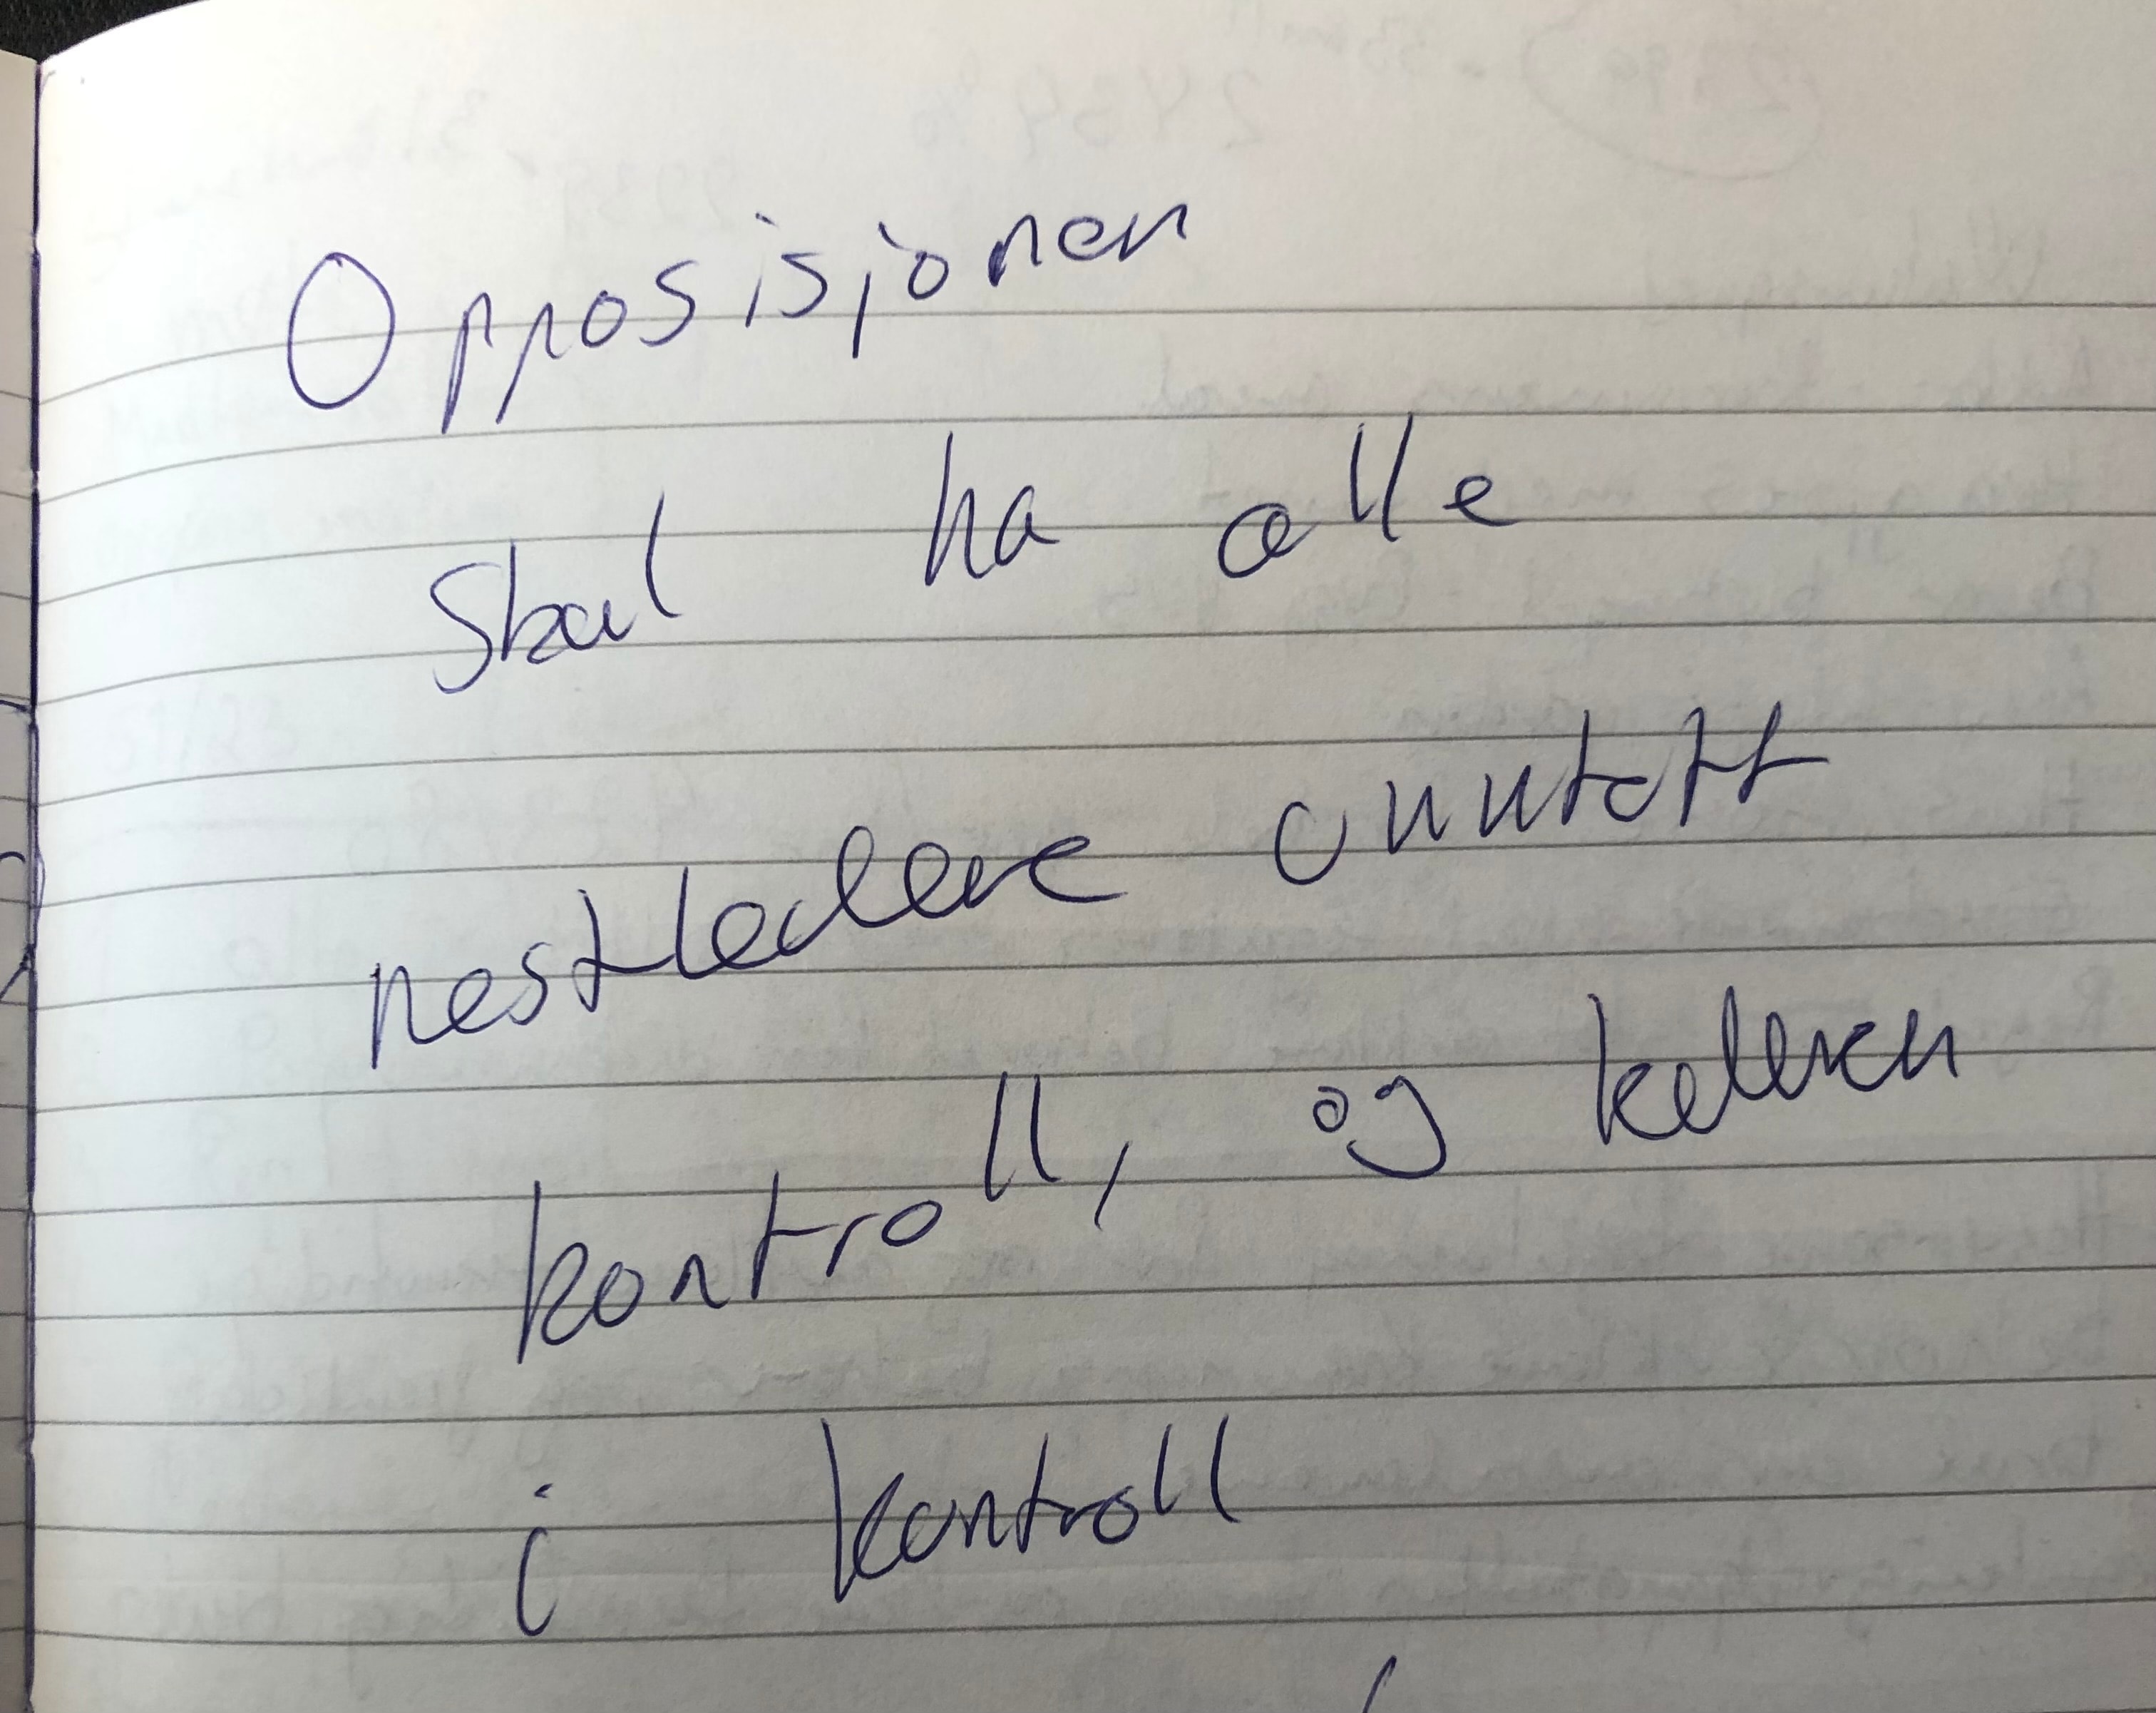 Opposisjonen
Skal ha alle
nestledere unntatt
kontroll, og
i kontroll